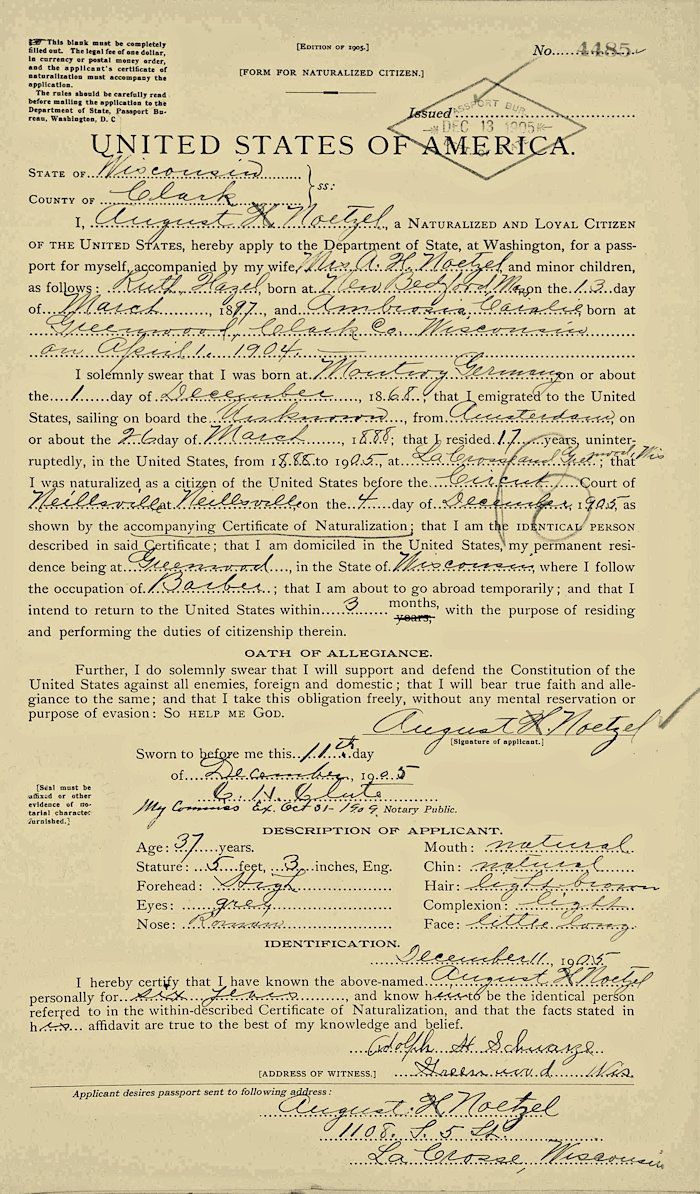 This blank must be completely
filled out. The legal fee of one dollar,
in currency or postal money order,
and the applicant's certificate of
naturalization must accompany the
application.
The rules should be carefully read
before mailing the application to the
Department of State, Passport Bu-
reau, Washington, D. C
[EDITION OF 1905.]
[FORM FOR NATURALIZED CITIZEN.]
No. 4485
Issued
PASSPORT BUR
DEC 13 1905
UNITED STATES OF AMERICA.
STATE OF Wisconsin
COUNTY OF Clark } ss:
I, August H Noetzel, a NATURALIZED AND LOYAL CITIZEN
OF THE UNITED STATES, hereby apply to the Department of State, at Washington, for a pass-
port for myself, accompanied by my wife, Mrs A. H. Noetzel and minor children,
as follows: Ruth Hazel, born at New Bedford Mass on the 13 day
of March, 1897, and Ambrosia Coralie, born at
Greenwood, Clark Co. Wisconsin
on April 1. 1904.
I solemnly swear that I was born at Germany on or about
the 1 day of December, 1868; that I emigrated to the United
States, sailing on board the Unknown, from Amsterdam, on
or about the 26 day of March, 1888; that I resided 17 years, uninter-
ruptedly, in the United States, from 1888 to 1905, at La Crosse and Greenwood, Wis; that
I was naturalized as a citizen of the United States before the Circuit Court of
Neillsville at Neillsville on the 4 day of December, 1905, as
shown by the accompanying Certificate of Naturalization; that I am the IDENTICAL PERSON
described in said Certificate; that I am domiciled in the United States, my permanent resi-
dence being at Greenwood, in the State of Wisconsin, where I follow
the occupation of Barber; that I am about to go abroad temporarily; and that I
intend to return to the United States within 3 months, years, with the purpose of residing
and performing the duties of citizenship therein.
OATH OF ALLEGIANCE.
Further, I do solemnly swear that I will support and defend the Constitution of the
United States against all enemies, foreign and domestic; that I will bear true faith and alle-
giance to the same; and that I take this obligation freely, without any mental reservation or
purpose of evasion: SO HELP ME GOD.
August H Noetzel
[Signature of applicant.]
Sworn to before me this 11th day
of December, 1905
C. H. Clute
My Commiss Ex. Oct 31-1909 Notary Public.
[Seal must be
affixed or other
evidence of no-
tarial character
furnished.]
DESCRIPTION OF APPLICANT.
Age: 37 years.
Mouth: natural
Stature: 5 feet, 3 inches, Eng.
Chin: natural
Forehead: High
Hair: light brown
Eyes: grey
Complexion: light
Nose: Roman
Face: little long
IDENTIFICATION.
December 11, 1905
I hereby certify that I have known the above-named August H Noetzel
personally for six years, and know him to be the identical person
referred to in the within-described Certificate of Naturalization, and that the facts stated in
his affidavit are true to the best of my knowledge and belief.
Adolph H Schwarze
[ADDRESS OF WITNESS.] Greenwood Wis.
Applicant desires passport sent to following address:
August H Noetzel
1108. S. 5 St.
La Crosse, Wisconsin